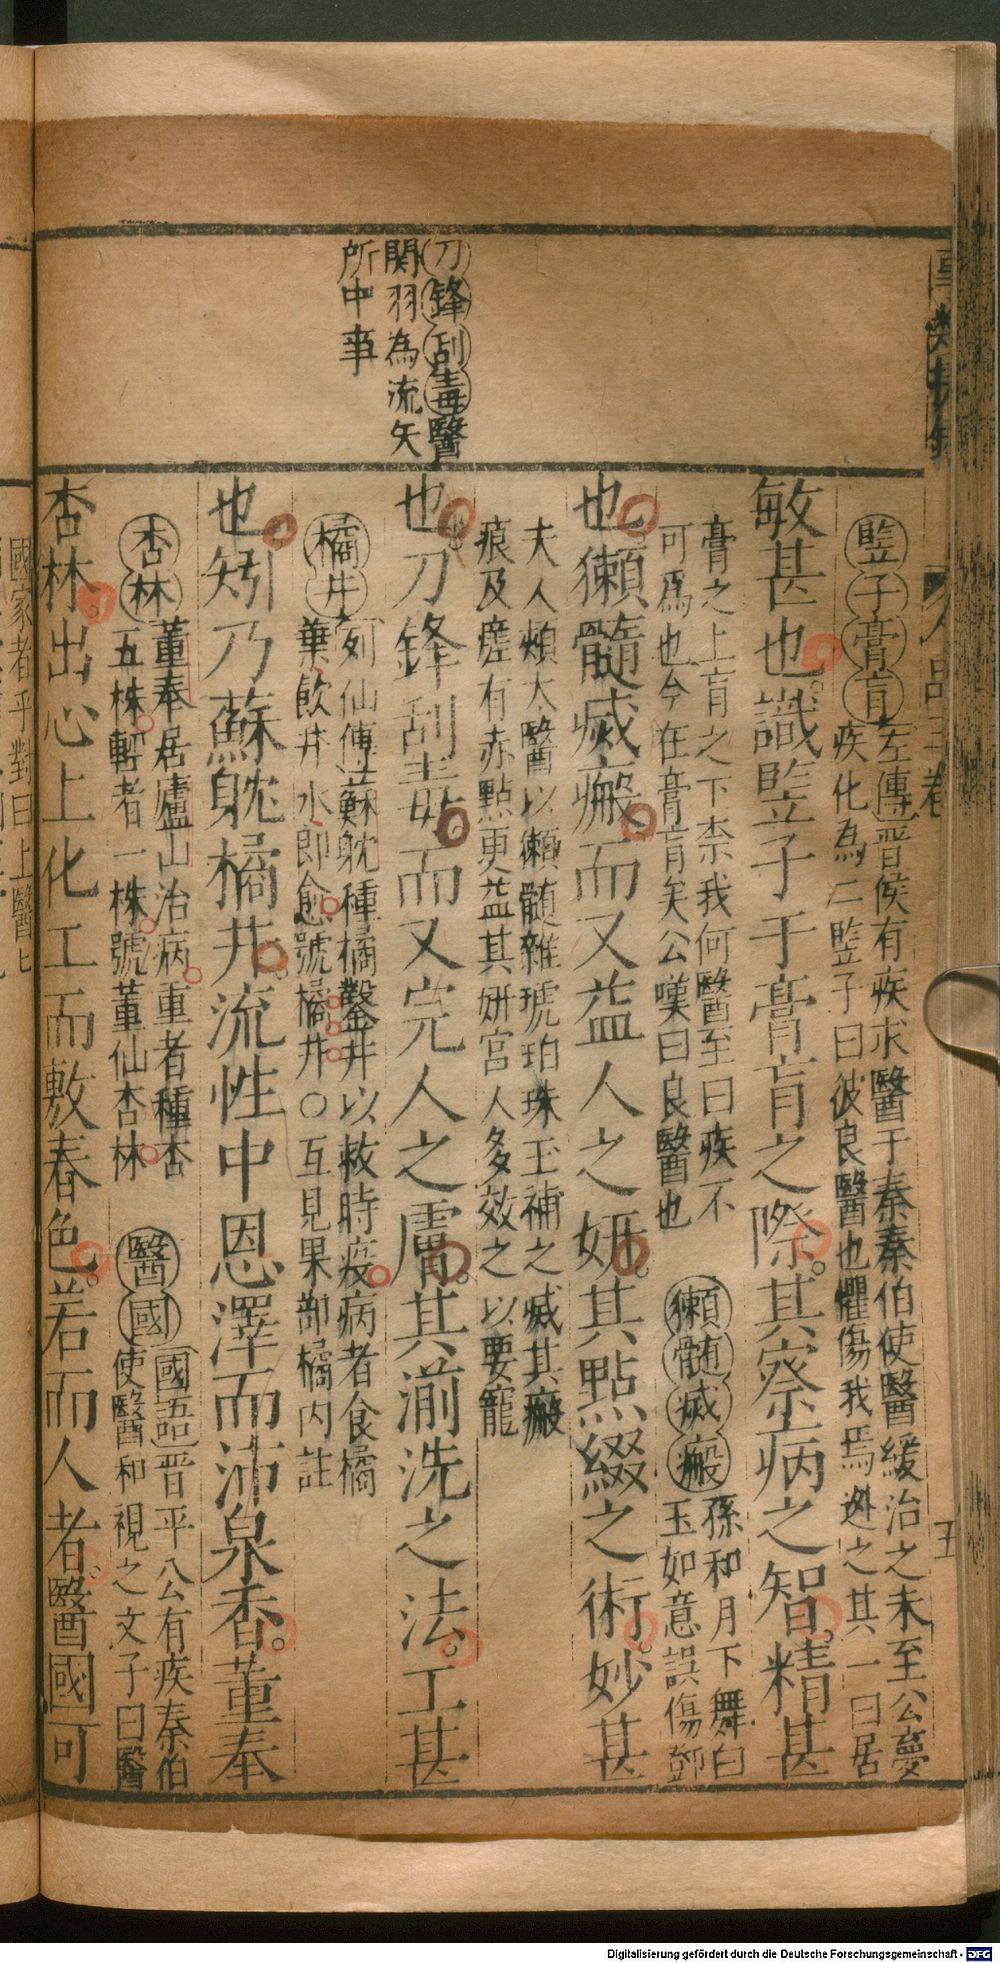 刀鋒刮毒醫
関羽為流矢
所中事
竪子膏肓左傳晋侯有疾求醫于秦秦伯使醫緩治之未至公夢
疾化為二竪子曰彼良醫也懼傷我焉逊之其一曰居
敏甚也識竪子于膏肓之際其察病之智精甚
膏之上肓之下柰我何醫至曰疾不
可為也今在膏肓矣公嘆曰良醫也
獺髄㓕瘢孫和月下舞白
玉如意誤傷鄧
也獺髓㓕瘢而又益人之妍其點綴之術妙甚
夫人頰太醫以獺髄雜琥珀珠玉補之㓕其瘢
痕及瘥有赤點更益其妍宮人多效之以要寵
也刀鋒刮毒而又完人之膚其湔洗之法工甚
橘井列仙傳蘇躭種橘鑿井以救時疫病者食橘
葉飲井水即愈號橘井○互見果部橘内註
也矧乃蘇躭橘井流性中恩澤而沛泉香董奉
杏林董奉居廬山治病重者種杏
五株輕者一株號董仙杏林
醫國國語晋平公有疾秦伯
使醫和視之文子曰醫
杏林出心上化工而敷春色若而人者醫國可
國家者乎對曰上醫匕
Digitalisierung gefördert durch die Deutsche Forschungsgemeinschaft - DFG